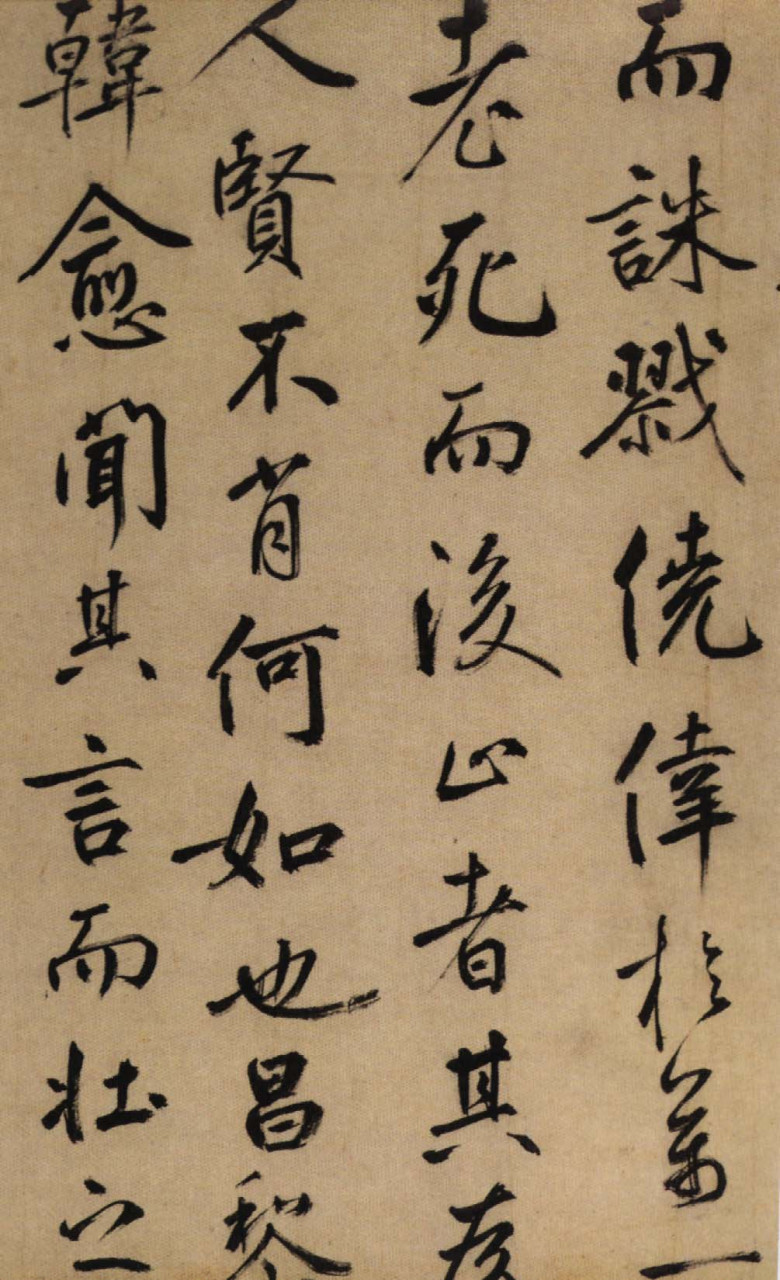 而誅戮僥倖於萬一
老死而後止者其於
人賢不肖何如也昌黎
韓愈聞其言而壯之